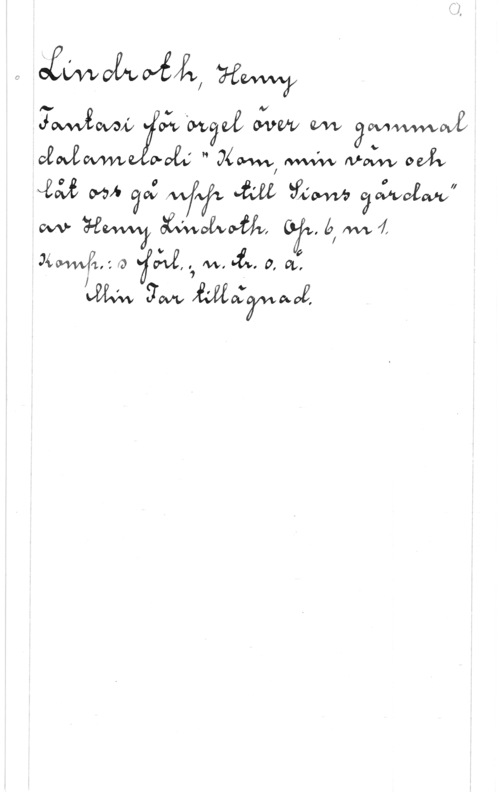 O.
Lindroth, Henry
Fantasi för orgel över en gammal
dalamelodi "Kom, min vän och
låt oss gå upp till Sions gårdar"
av Henry Lindroth. Op. 6, nr 1.
Komp.:s förl.; u. tr. o. å.
Min Far tillägnad.